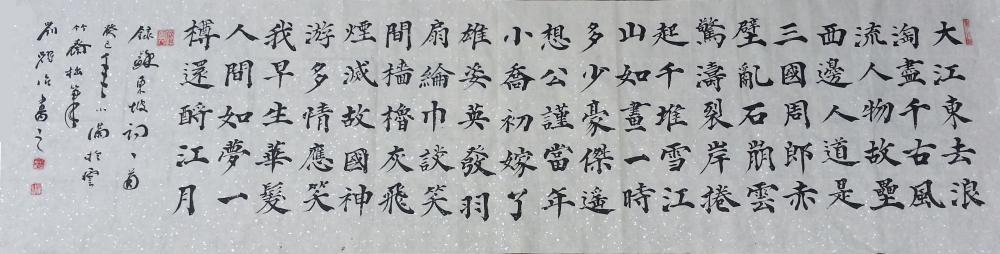 大江東去浪
淘盡千古風
流人物故壘
西邊人道是
三國周郎赤
壁亂石崩雲
驚濤裂岸捲
起千堆雪江
山如畫一時
多少豪傑遙
想公謹當年
小喬初嫁了
雄姿英發羽
扇綸巾談笑
間檣櫓灰飛
煙滅故國神
游多情應笑
我早生華髮
人間如夢一
樽還酹江月
錄蘇東坡詞
癸巳